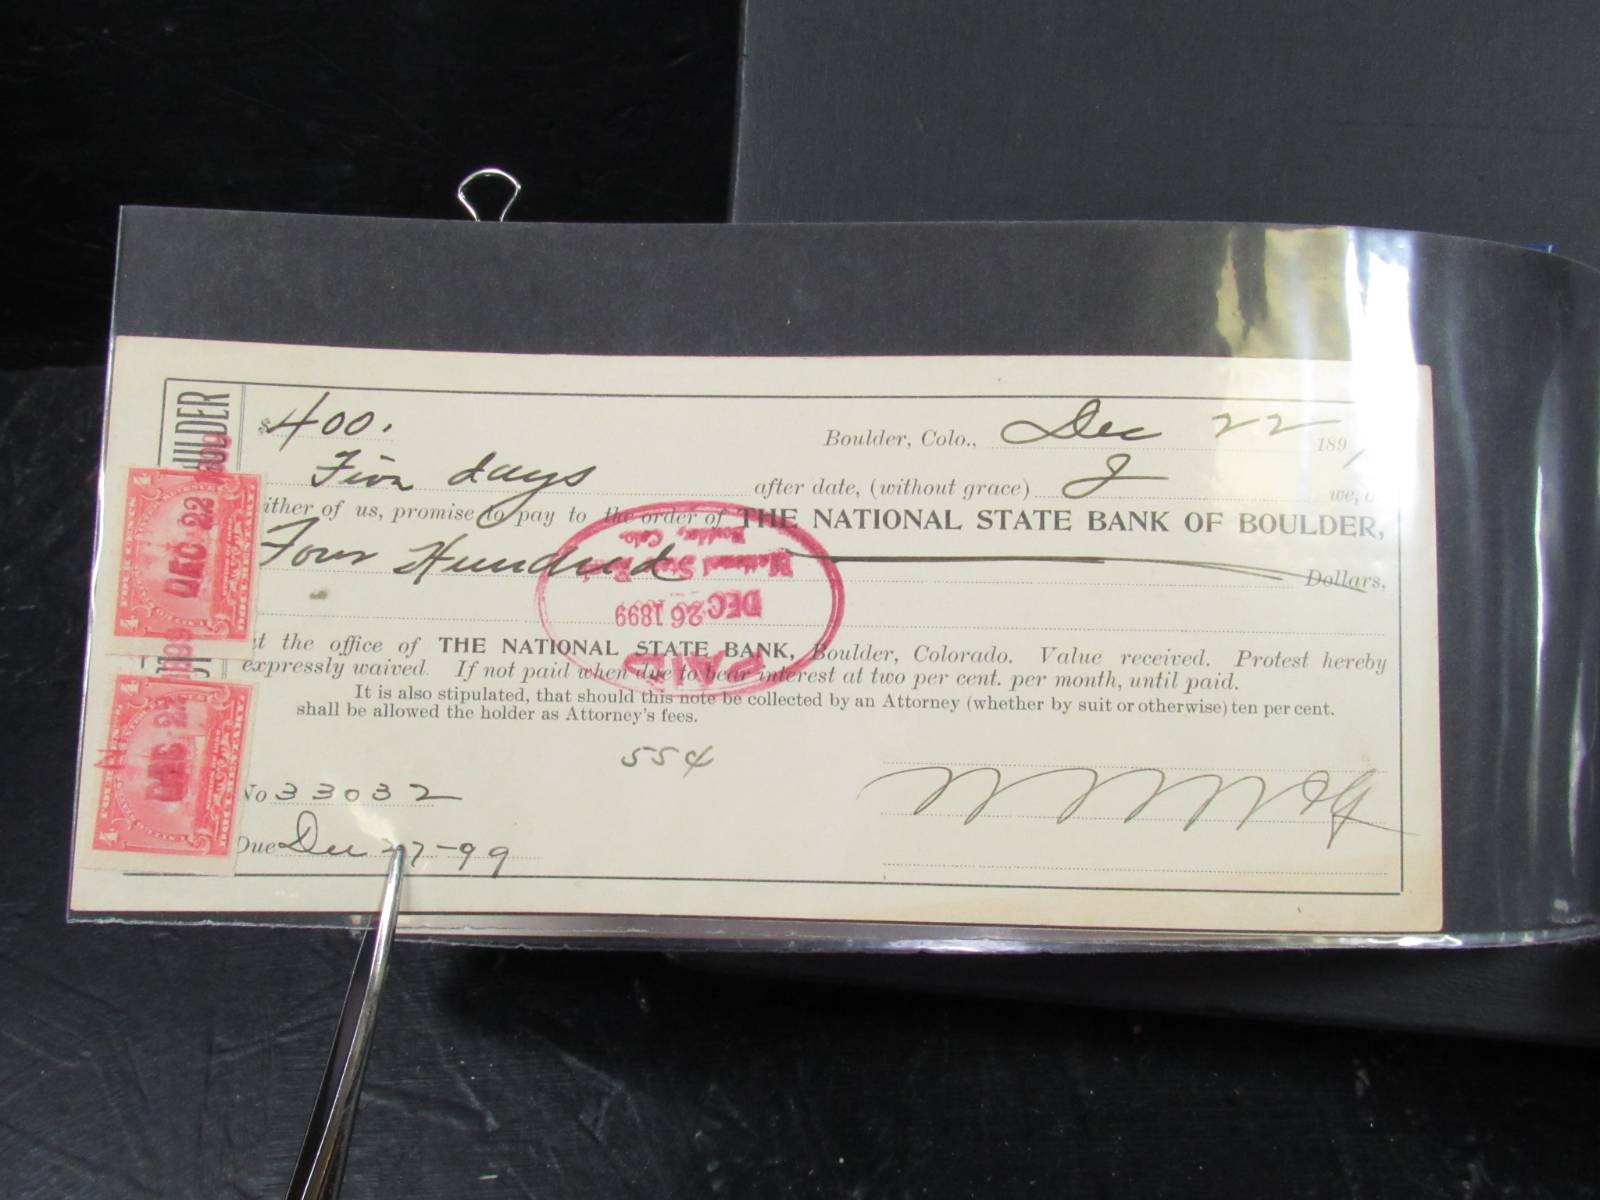 $400.
Boulder, Colo., Dec 22 189
Five days after date, (without grace) I we, o
ither of us, promise to pay to the order of THE NATIONAL STATE BANK OF BOULDER,
Four Hundred Dollars,
at the office of THE NATIONAL STATE BANK, Boulder, Colorado. Value received. Protest hereby
expressly waived. If not paid when due to bear interest at two per cent. per month, until paid.
It is also stipulated, that should this note be collected by an Attorney (whether by suit or otherwise) ten per cent.
shall be allowed the holder as Attorney's fees.
554
No 33032
Due Dec 27-99
National State Bank
Boulder, Colo.
DEC 26 1899
PAID
ULDER
FOUR CENTS
DOCUMENTARY
4 4
DEC 22 1899
FOUR CENTS
DOCUMENTARY
4 4
DEC 22 1899